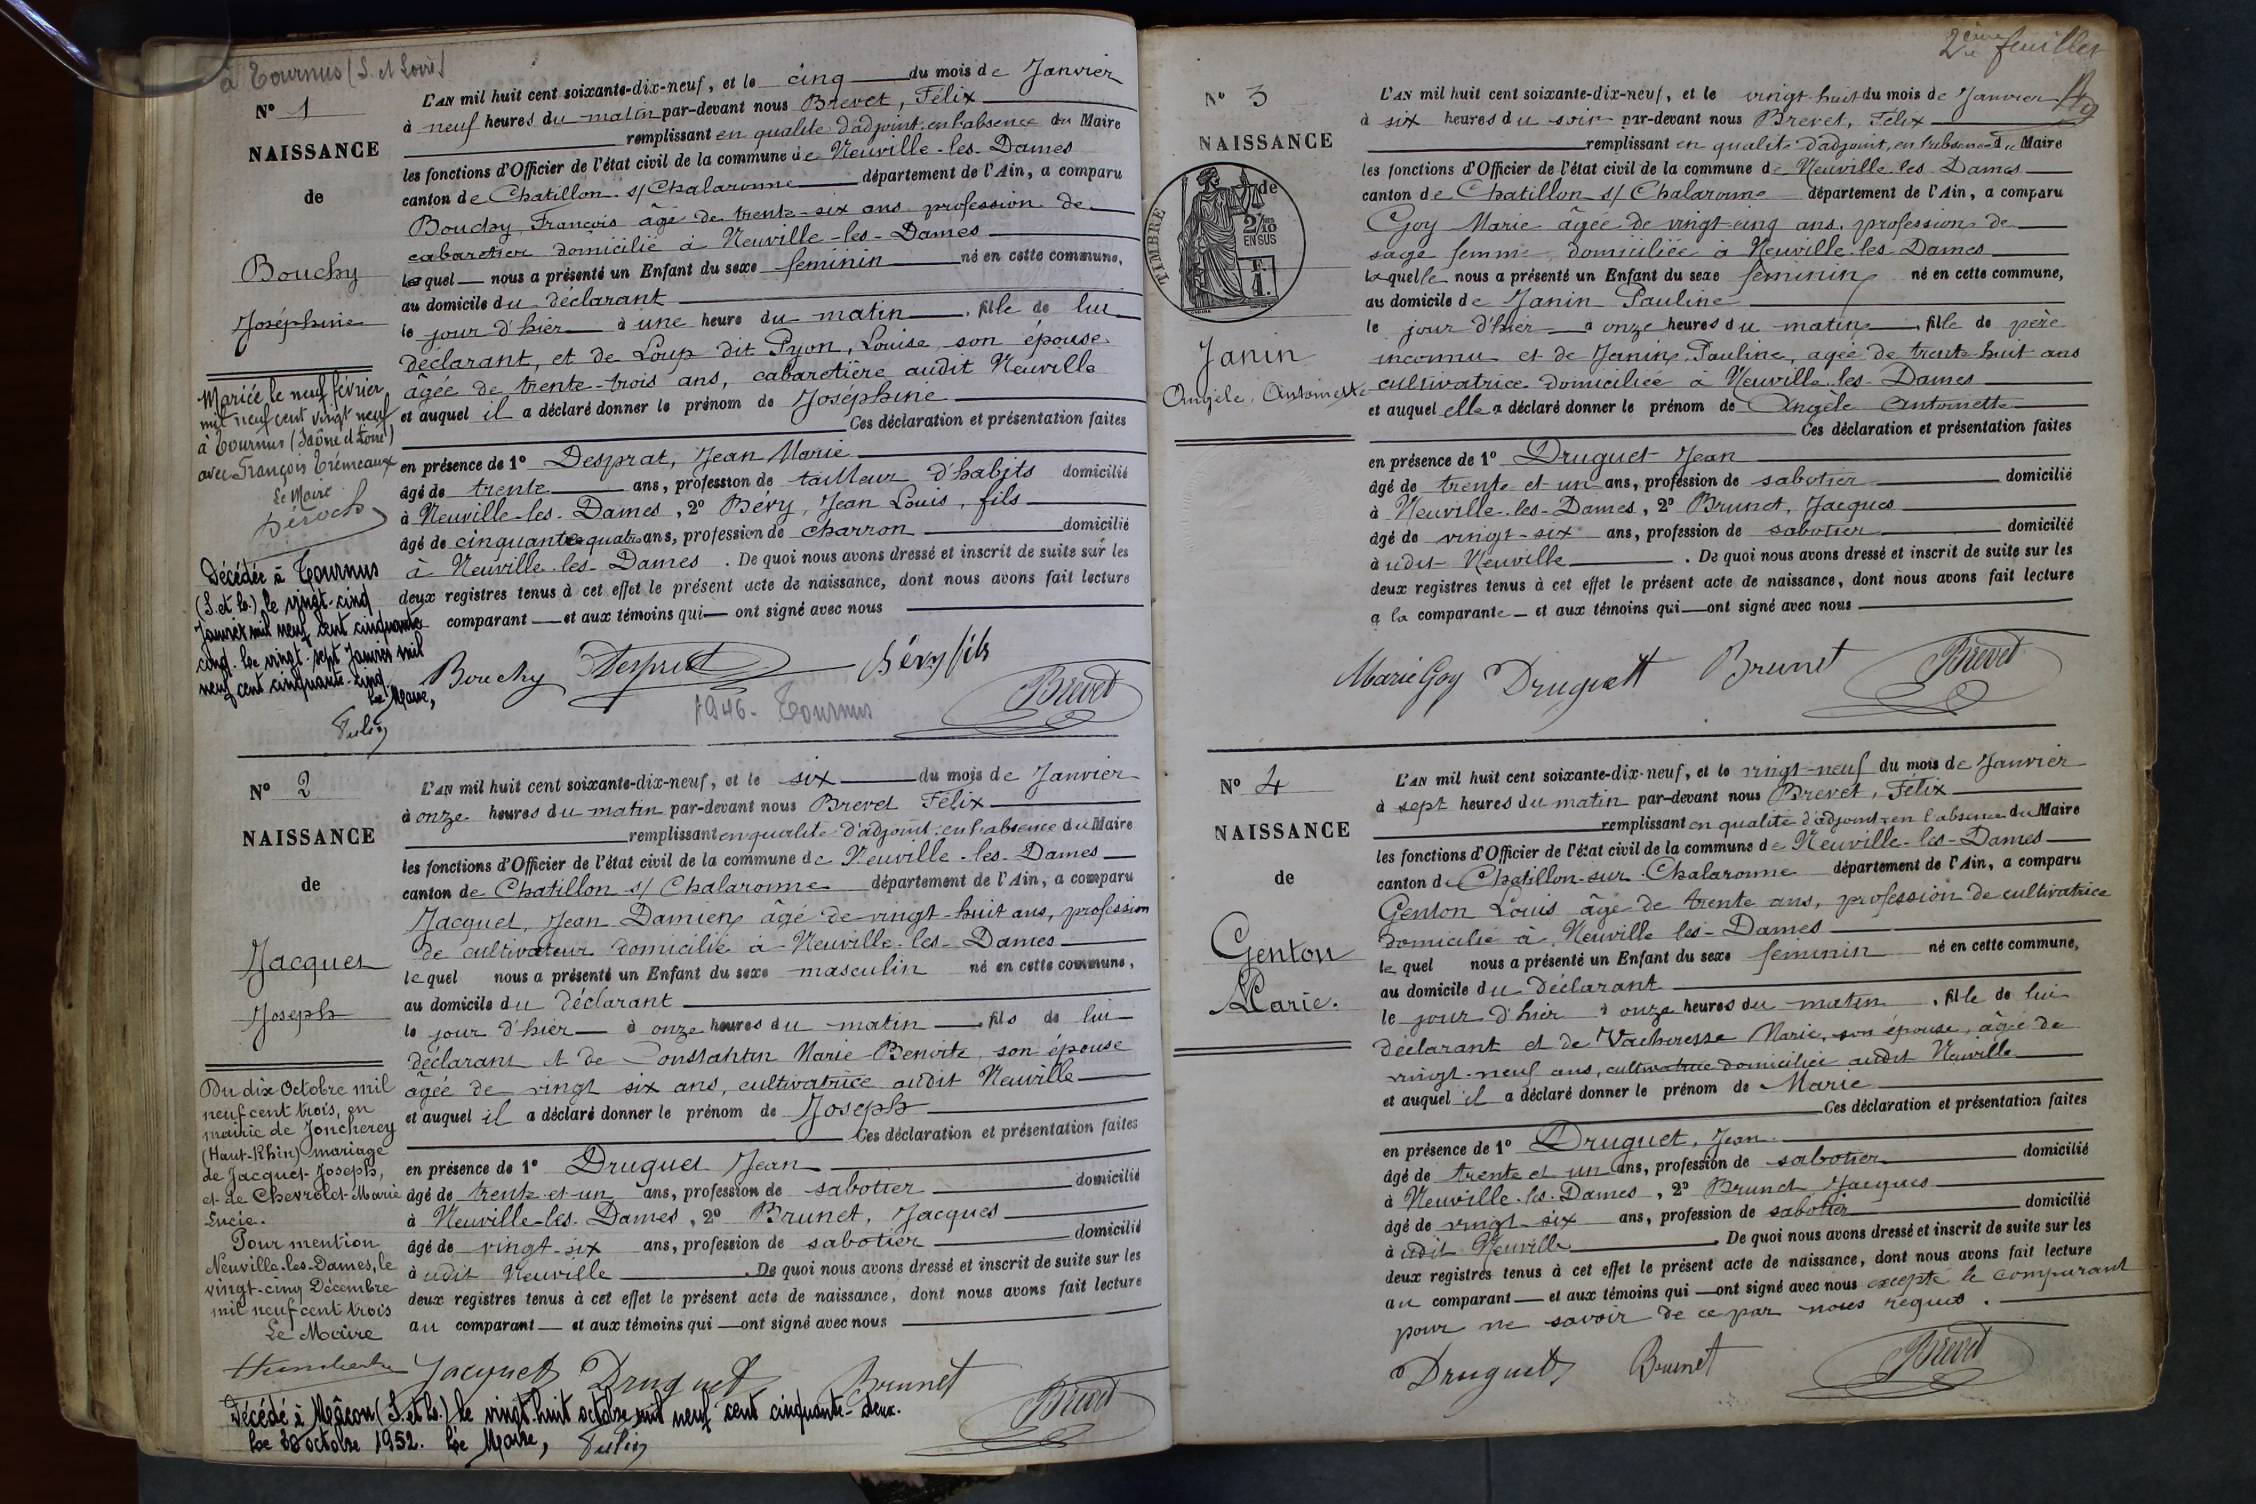 à Tournus (S. et Loire)
N° 1
NAISSANCE
de
Bouchy
Joséphine
Mariée le neuf février
mil neuf cent vingt neuf
à Tournus (Saône et Loire)
avec François Trémeaux
Le Maire
Décédée à Tournus
(S. et L.) le vingt-cinq
Janvier mil neuf cent cinquante
cinq. Le vingt-sept Janvier mil
neuf cent cinquante-cinq
Le Maire,
L'AN mil huit cent soixante-dix-neuf, et le cinq du mois de Janvier
à neuf heures du matin par-devant nous Brevet, Félix
remplissant en qualité d'adjoint en l'absence du Maire
les fonctions d'Officier de l'état civil de la commune de Neuville-les-Dames
canton de Chatillon s/ Chalaronne département de l'Ain, a comparu
Bouchy, François âgé de trente-six ans profession de
cabaretier domicilié à Neuville-les-Dames
lequel nous a présenté un Enfant du sexe féminin né en cette commune,
au domicile du déclarant
le jour d'hier à une heure du matin, fille de lui
déclarant, et de Loup dit Pyon, Louise, son épouse
âgée de trente-trois ans, cabaretière audit Neuville
et auquel il a déclaré donner le prénom de Joséphine
Ces déclaration et présentation faites
en présence de 1° Desprat, Jean Marie
âgé de trente ans, profession de tailleur d'habits domicilié
à Neuville-les-Dames, 2° Béry, Jean Louis, fils
âgé de cinquante quatre ans, profession de charron domicilié
à Neuville-les-Dames. De quoi nous avons dressé et inscrit de suite sur les
deux registres tenus à cet effet le présent acte de naissance, dont nous avons fait lecture
comparant et aux témoins qui ont signé avec nous
Bouchy Desprat Béry fils
Brevet
1946 - Tournus
N° 2
NAISSANCE
de
Jacquet
Joseph
Du dix Octobre mil
neuf cent trois, en
mairie de Joncherey
(Haut-Rhin) mariage
de Jacquet Joseph,
et de Chevrolet Marie
Lucie.
Pour mention
Neuville-les-Dames, le
vingt-cinq Décembre
mil neuf cent trois
Le Maire
L'AN mil huit cent soixante-dix-neuf, et le six du mois de Janvier
à onze heures du matin par-devant nous Brevet Félix
remplissant en qualité d'adjoint en l'absence du Maire
les fonctions d'Officier de l'état civil de la commune de Neuville-les-Dames
canton de Chatillon s/ Chalaronne département de l'Ain, a comparu
Jacquet, Jean Damien âgé de vingt-huit ans, profession
de cultivateur domicilié à Neuville-les-Dames
lequel nous a présenté un Enfant du sexe masculin né en cette commune,
au domicile du déclarant
le jour d'hier à onze heures du matin, fils de lui
déclarant et de Constantin Marie-Benoite, son épouse
âgée de vingt six ans, cultivatrice audit Neuville
et auquel il a déclaré donner le prénom de Joseph
Ces déclaration et présentation faites
en présence de 1° Druguet Jean
âgé de trente-et-un ans, profession de sabotier domicilié
à Neuville-les-Dames, 2° Brunet, Jacques
âgé de vingt-six ans, profession de sabotier domicilié
à udit Neuville. De quoi nous avons dressé et inscrit de suite sur les
deux registres tenus à cet effet le présent acte de naissance, dont nous avons fait lecture
au comparant et aux témoins qui ont signé avec nous
Jacquet Druguet Brunet
Brevet
Décédé à Mâcon (S. et L.) le vingt-huit octobre mil neuf cent cinquante-deux.
Le 30 octobre 1952. Le Maire,
2ème feuillet
N° 3
NAISSANCE
de
TIMBRE
2/10
EN SUS
Janin
Angèle, Antoinette
L'AN mil huit cent soixante-dix-neuf, et le vingt-huit du mois de Janvier
à six heures du soir par-devant nous Brevet, Félix
remplissant en qualité d'adjoint, en l'absence du Maire
les fonctions d'Officier de l'état civil de la commune de Neuville les Dames
canton de Chatillon s/ Chalaronne département de l'Ain, a comparu
Goy Marie âgée de vingt-cinq ans, profession de
sage femme domiciliée à Neuville-les-Dames
laquelle nous a présenté un Enfant du sexe féminin né en cette commune,
au domicile de Janin Pauline
le jour d'hier à onze heures du matin, fille de père
inconnu et de Janin, Pauline, agée de trente-huit ans
cultivatrice domiciliée à Neuville-les-Dames
et auquel elle a déclaré donner le prénom de Angèle Antoinette
Ces déclaration et présentation faites
en présence de 1° Druguet Jean
âgé de trente et un ans, profession de sabotier domicilié
à Neuville-les-Dames, 2° Brunet, Jacques
âgé de vingt-six ans, profession de sabotier domicilié
à udit Neuville. De quoi nous avons dressé et inscrit de suite sur les
deux registres tenus à cet effet le présent acte de naissance, dont nous avons fait lecture
a la comparante et aux témoins qui ont signé avec nous
Marie Goy Druguet Brunet Brevet
N° 4
NAISSANCE
de
Genton
Marie.
L'AN mil huit cent soixante-dix-neuf, et le vingt-neuf du mois de Janvier
à sept heures du matin par-devant nous Brevet, Félix
remplissant en qualité d'adjoint en l'absence du Maire
les fonctions d'Officier de l'état civil de la commune de Neuville-les-Dames
canton de Chatillon-sur-Chalaronne département de l'Ain, a comparu
Genton Louis âgé de trente ans, profession de cultivatrice
domicilié à Neuville les-Dames
lequel nous a présenté un Enfant du sexe féminin né en cette commune,
au domicile du déclarant
le jour d'hier à onze heures du matin, fille de lui
déclarant et de Vacheresse Marie, son épouse, âgée de
vingt-neuf ans, cultivatrice domiciliée audit Neuville
et auquel il a déclaré donner le prénom de Marie
Ces déclaration et présentation faites
en présence de 1° Druguet, Jean
âgé de trente et un ans, profession de sabotier domicilié
à Neuville-les-Dames, 2° Brunet Jacques
âgé de vingt-six ans, profession de sabotier domicilié
à udit Neuville. De quoi nous avons dressé et inscrit de suite sur les
deux registres tenus à cet effet le présent acte de naissance, dont nous avons fait lecture
au comparant et aux témoins qui ont signé avec nous excepté le comparant
pour ne savoir de ce par nous requis.
Druguet Brunet Brevet